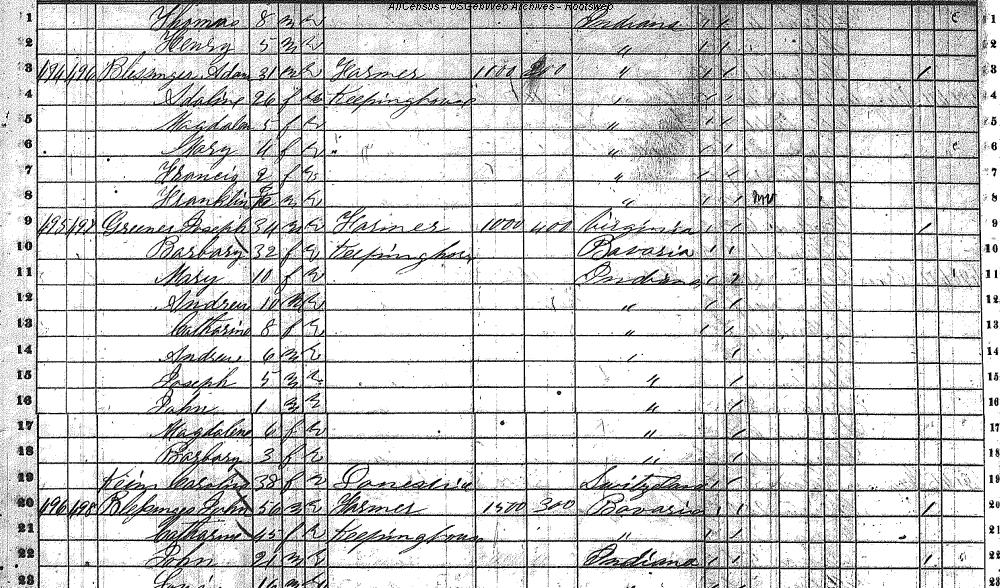 AllCensus - USGenWeb Archives - Rootsweb
1 Thomas 8 m W Indiana 1 1 c 1
2 Henry 5 m W " 1 1 2
3 194 196 Blessinger Adam 31 m W Farmer 1100 " 1 1 1 3
4 Adaline 26 f W Keepinghouse " 1 1 4
5 Magdalen 5 f W " 5
6 Mary 4 f W " " 1 1 c 6
7 Francis 2 f W " 1 1 7
8 Franklin m W " 1 1 8
9 195 197 Greener Joseph 34 m W Farmer 1000 400 Virginia 1 1 1 9
10 Barbary 32 f W Keepinghouse Bavaria 1 1 10
11 Mary 10 f W Indiana 1 11
12 Andrew 10 W " 1 1 12
13 Catharine 8 f W " 1 1 13
14 Andrew 6 m W " 1 14
15 Joseph 5 m W " 1 15
16 John 1 m W " 1 16
17 Magdaline 6 f W " 1 17
18 Barbary 3 f W " 18
19 Keim Caroline 38 f W Domestic Switzland 1 1 19
20 196 198 Blessinger John 56 m W Farmer 1500 300 Bavaria 1 1 1 20
21 Catharine 45 f W Keepinghouse " 1 1 21
22 John 21 m W Indiana 1 1 1 22
23 16 m W 23